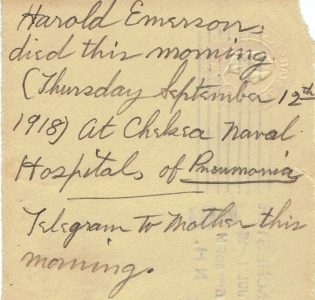 Harold Emerson,
died this morning
(Thursday September 12th
1918) At Chelsea Naval
Hospital, of Pneumonia
Telegram to Mother this
morning.